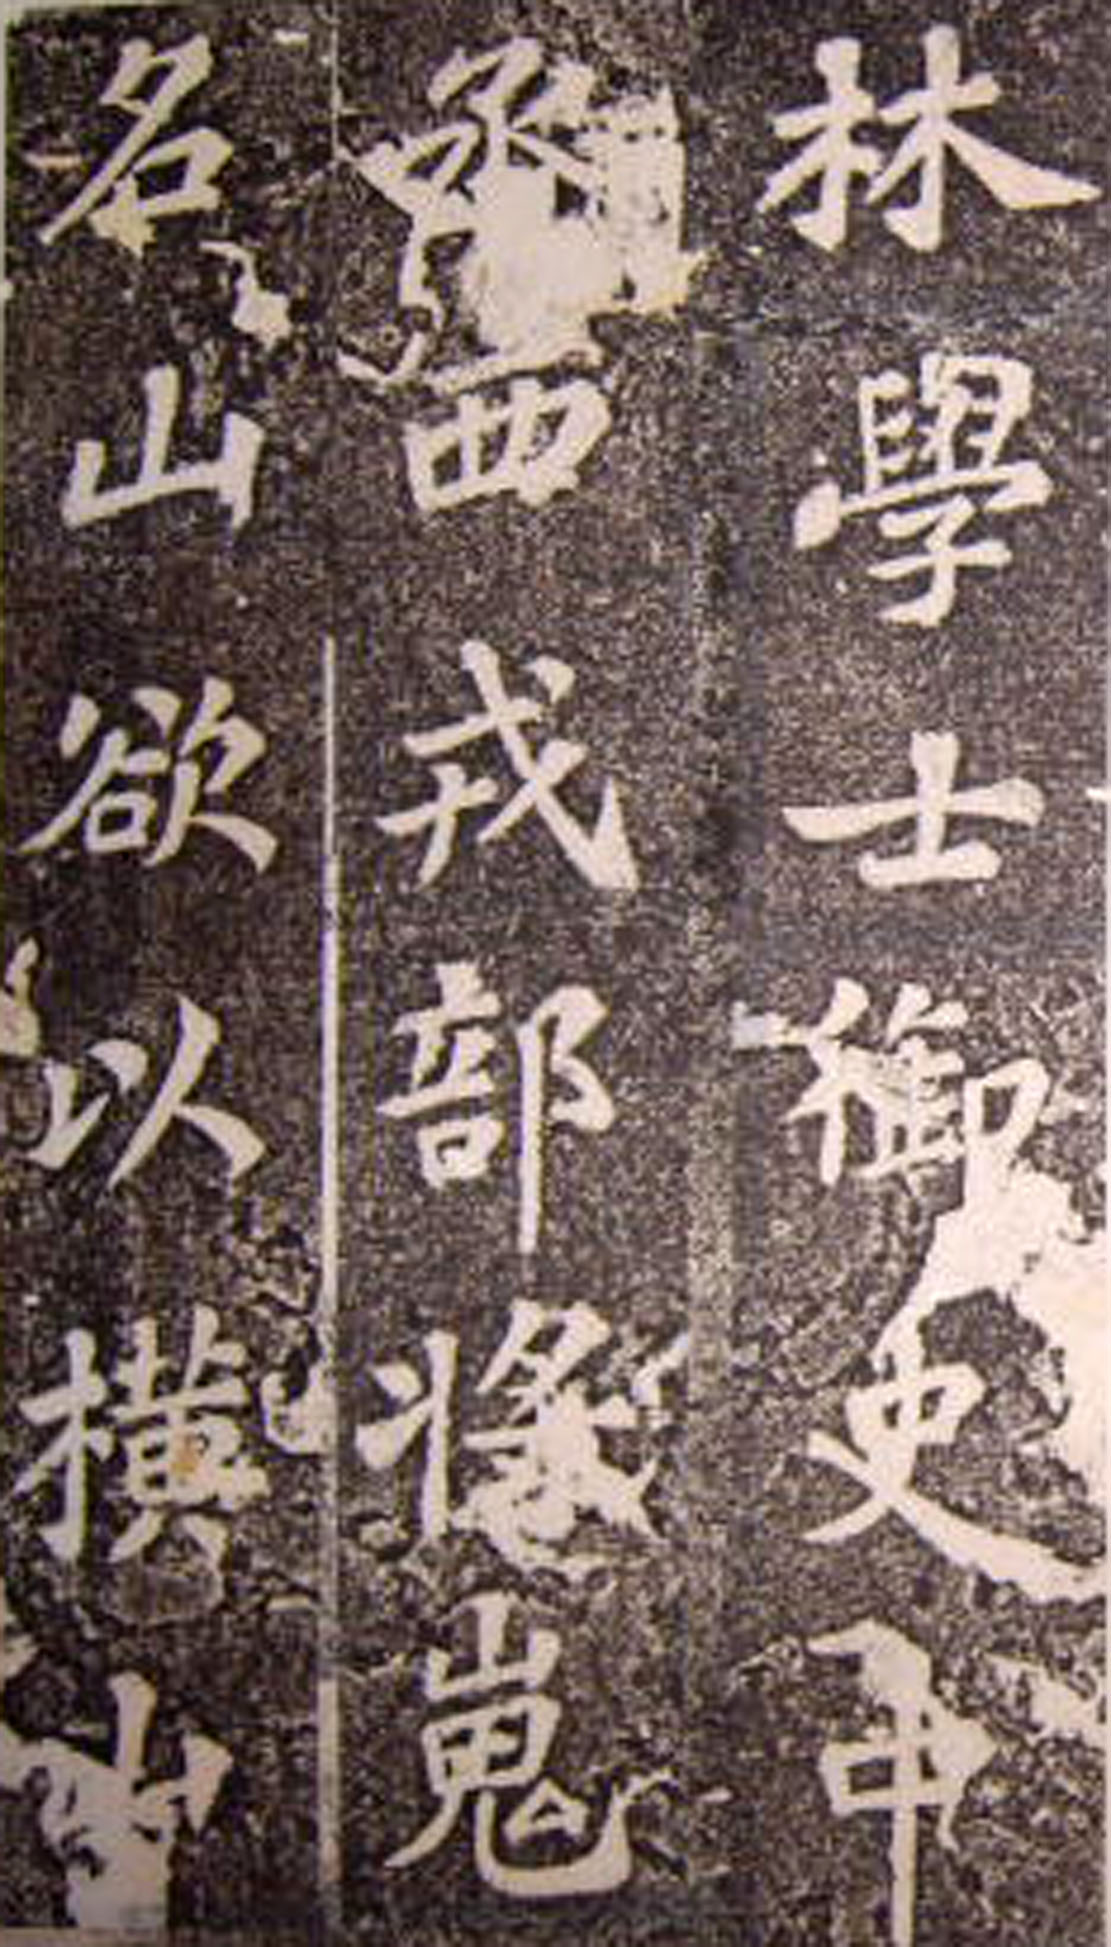 林學士御史中
丞西戎部將嵬
名山欲以橫山